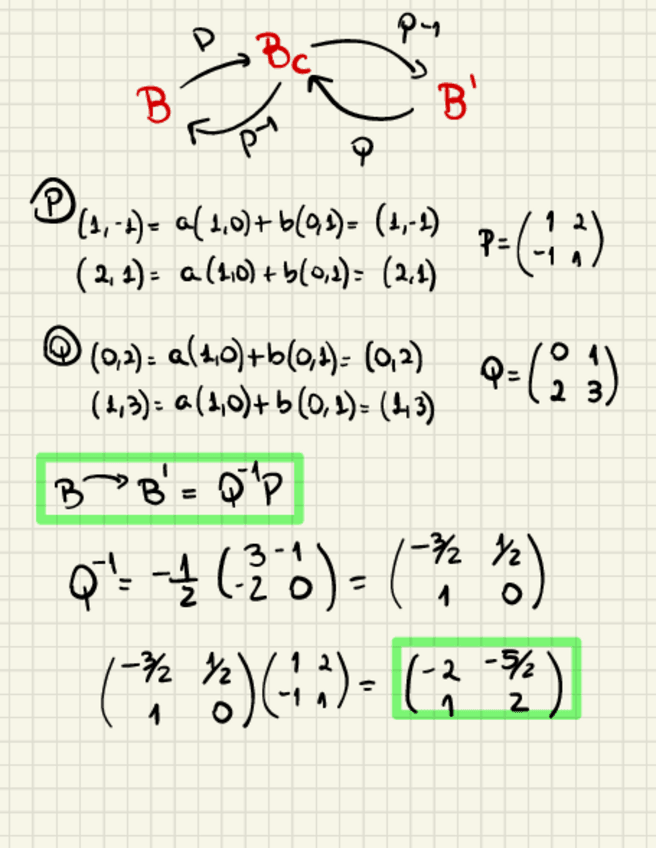 P
B_C
P-1
B
B'
P⁻¹
Q
P (1,-1)= a(1,0)+b(0,1)= (1,-1)
(2,1)= a(1,0)+b(0,1)= (2,1)
P= ( 1 2
-1 1 )
Q (0,2)= a(1,0)+b(0,1)= (0,2)
(1,3)= a(1,0)+b(0,1)= (1,3)
Q= ( 0 1
2 3 )
B → B' = Q⁻¹P
Q⁻¹= -1/2 ( 3 -1
-2 0 ) = ( -3/2 1/2
1 0 )
( -3/2 1/2
1 0 ) ( 1 2
-1 1 ) = ( -2 -5/2
1 2 )